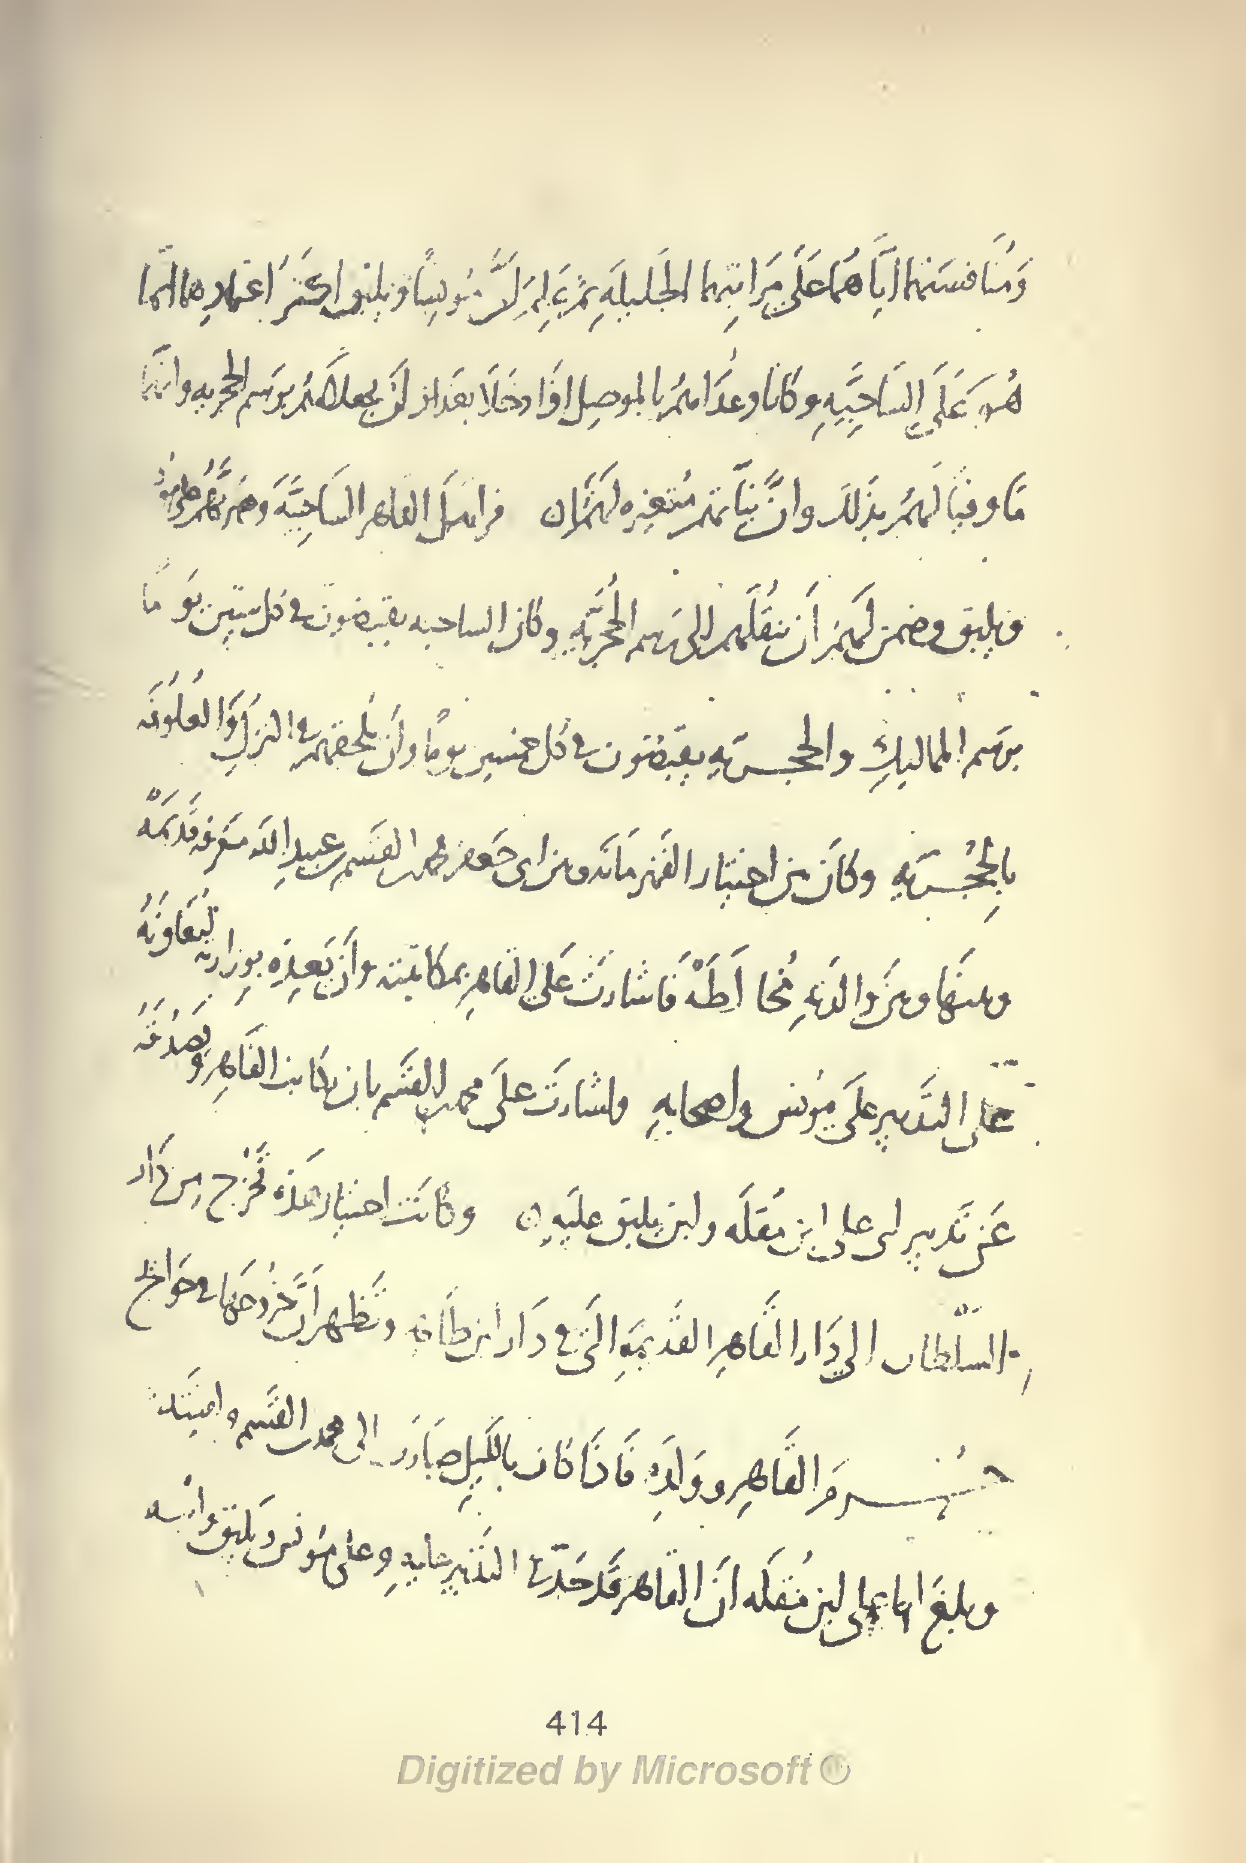 وَمُنافستهما ايَّاهُما عَلَى مَرَاتبهما الجَليلَهِ ثم عَلِمَ اَنَّ مُونِسًا وبليق اكثرُ اعتمادِهما انّما
هُوَ عَلَى السَاجِيَّهِ وكانا وعدَاهُم بالموصِل اذَا دخَلَا بغداذ اَن يجعلاهُم برَسم الحجريه وانهُما
مَا وفيَا لَهُم بذَلكَ وانَّ نيَّاتهم مُتغيره لهذا ن فراسَلَ القاهر السَاجيَّهَ وضَرَّبَهُم على مونس
وبليق وضمن لَهُم اَن ينقُلَهم الى رسم الحُجَريَّهِ وكان الساجيه يقبضون فى كل ستين يَومًا
برَسم المماليكِ والحجريَهِ يقبضون فى كُل خمسين يومًا وأن يُلحقهم فى النُزلِ وَالعُلُوفَه
بالحُجريَهِ وكانَ بين اختيار القهرمَانَه وبين ابى جَعفر محمد بن القسَم بن عبيدِ الله مَعرفه قَديمَهْ
وبينها وبين وَالدَتهِ مُخالَطَهْ فَاشارَت عَلى القاهِر بمكاتبته وأن يَعِدَه بوِزارته ليُعَاونَهُ
عَلى التَدبير علَى مونس واصحابهِ واشارَت علَى محمد بن القسَم بان يكاتبَ القَاهِر ويَصدُقَهُ
عَن تَدبير ابى على ابن مُقلَه وابن بليق علَيهِ ن وكانَت اختيار هَذه تَخرُج مِن دَار
السّلطان الى دَار القَاهِر القَديمَهِ التَى فى دَار ابن طَاهر وتُظهر أنَّ خُرُوجَهَا فى حَوَائج
حُرَمِ القَاهِر ووَلَدِهِ فَاذَا كانَ بالليلِ صَارَت الى محمد بن القسَم وامتَدت
وبلغَ ابا على ابن مُقلَه انَّ القاهر قَد جَدّ فى التَدبير عليهِ وعلى مُونس وبَليق وابنه
414
Digitized by Microsoft ®